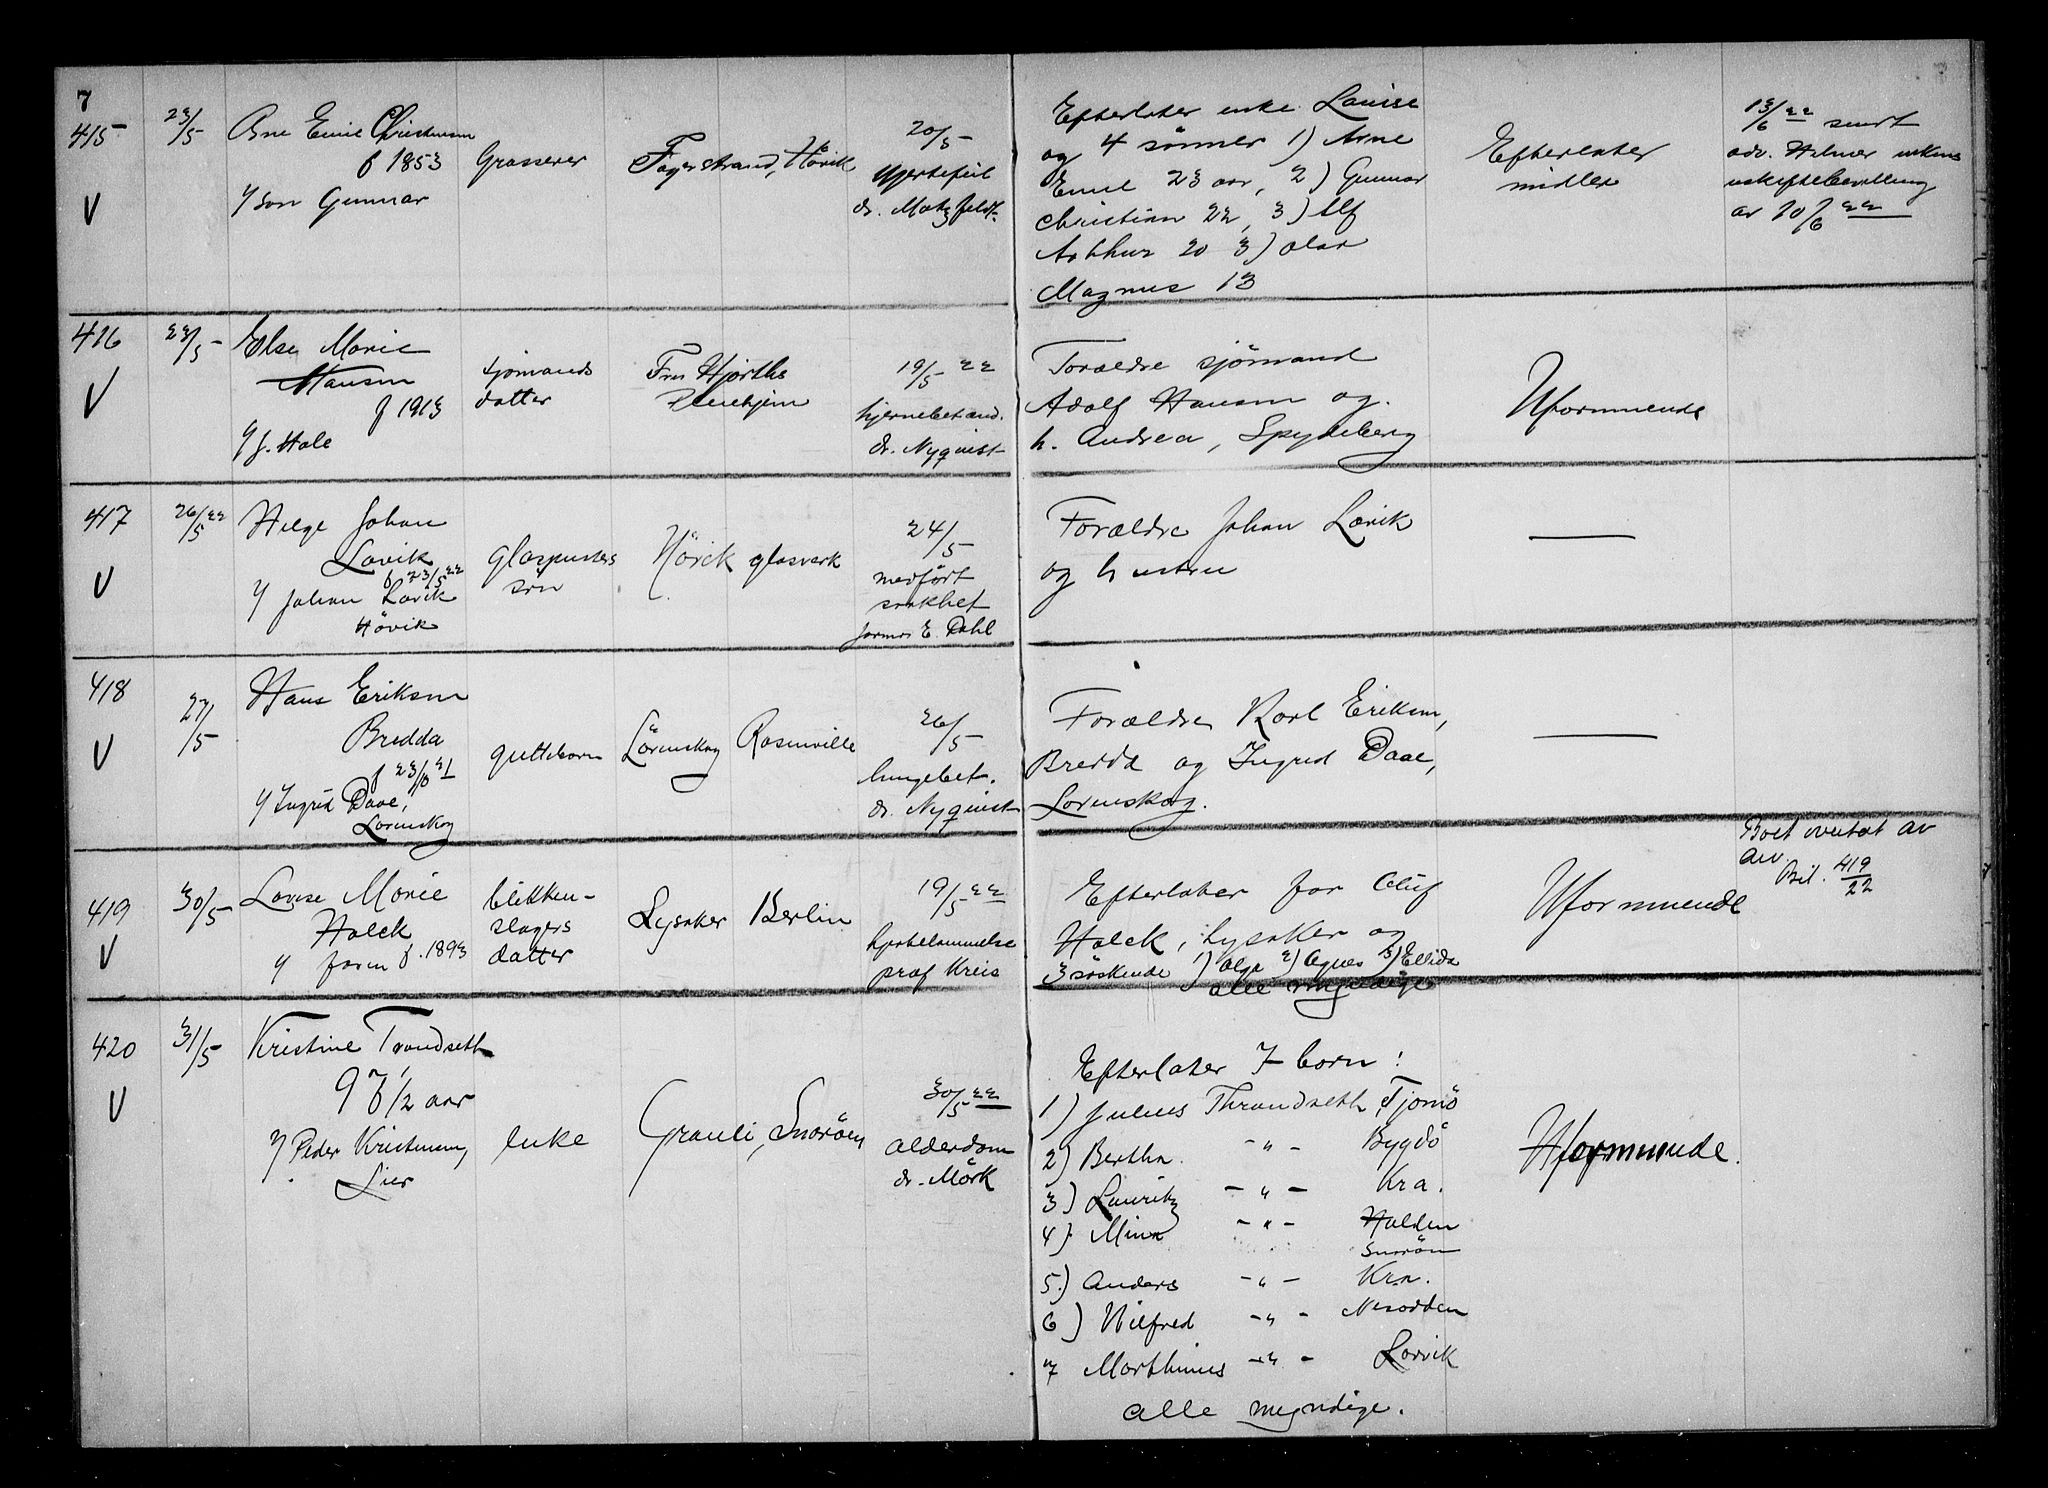 7
415
23/5
Arne Emil Christensen
f 1853
Grosserer
Fagerstrand, Hövik
20/5
Hjertefeil
dr. Motzfeldt
Efterlater enke Louise
og 4 sönner 1) Arne
Emil 23 aar, 2) Gunnar
Christian 22, 3) Alf
Arthur 20 3) Olav
Magnus 13
Efterlater
midler
13/6 22 sendt
adv. Helmer enkens
uskiftebevilling
av 10/6 22
V
y son Gunnar
416
23/5
V
Else Marie
Hansen
f 1913
y f. Hale
sjömands
datter
Fru Hjorths
Pleiehjem
19/5 22
hjernebetænd.
dr. Nyquist
Forældre sjömand
Adolf Hansen og
h. Andrea, Spydeberg
Uformuende
417
26/5 22
V
Helge Johan
Lövik
f 23/5 22
y Johan Lövik
Hövik
Glaspusters
sön
Hövik glasverk
24/5
medfört
svakhet
jormor E. Dahl
Forældre Johan Lövik
og hustru
—
418
27/5
V
Hans Eriksen
Bredda
f 23/10 21
y Ingrid Daae,
Lörenskog
guttebarn
Lörenskog Rosenville
26/5
lungebet.
dr. Nyquist
Forældre Karl Eriksen,
Bredda og Ingrid Daae,
Lörenskog.
—
419
30/5
V
Lovise Marie
Holck
y faren f. 1893
blikken-
slagers
datter
Lysaker Berlin
19/5 22
hjertelammelse
prof Kreis
Efterlater far Oluf
Holck, Lysaker og
3 söskende 1) Olga 2) Agnes 3) Ellida
alle myndige
Uformuende
Boet overtat av
arv.
Bil. 419/22
420
31/5
V
Kristine Trondseth
97 1/2 aar
y Peder Kristensen,
Lier
Enke
Granli, Snaröen
30/5 22
Alderdom
dr. Mörk
Efterlater 7 born:
1) Julius Throndseth, Tjömö
2) Bertha -"- Bygdö
3) Lauritz -"- Kra.
4) Mina -"- Halden
Snaröen
5.) Anders -"- Kra.
6) Hilfred -"- Nesodden
7 Marthinus -"- Larvik
Alle myndige.
Uformuende.